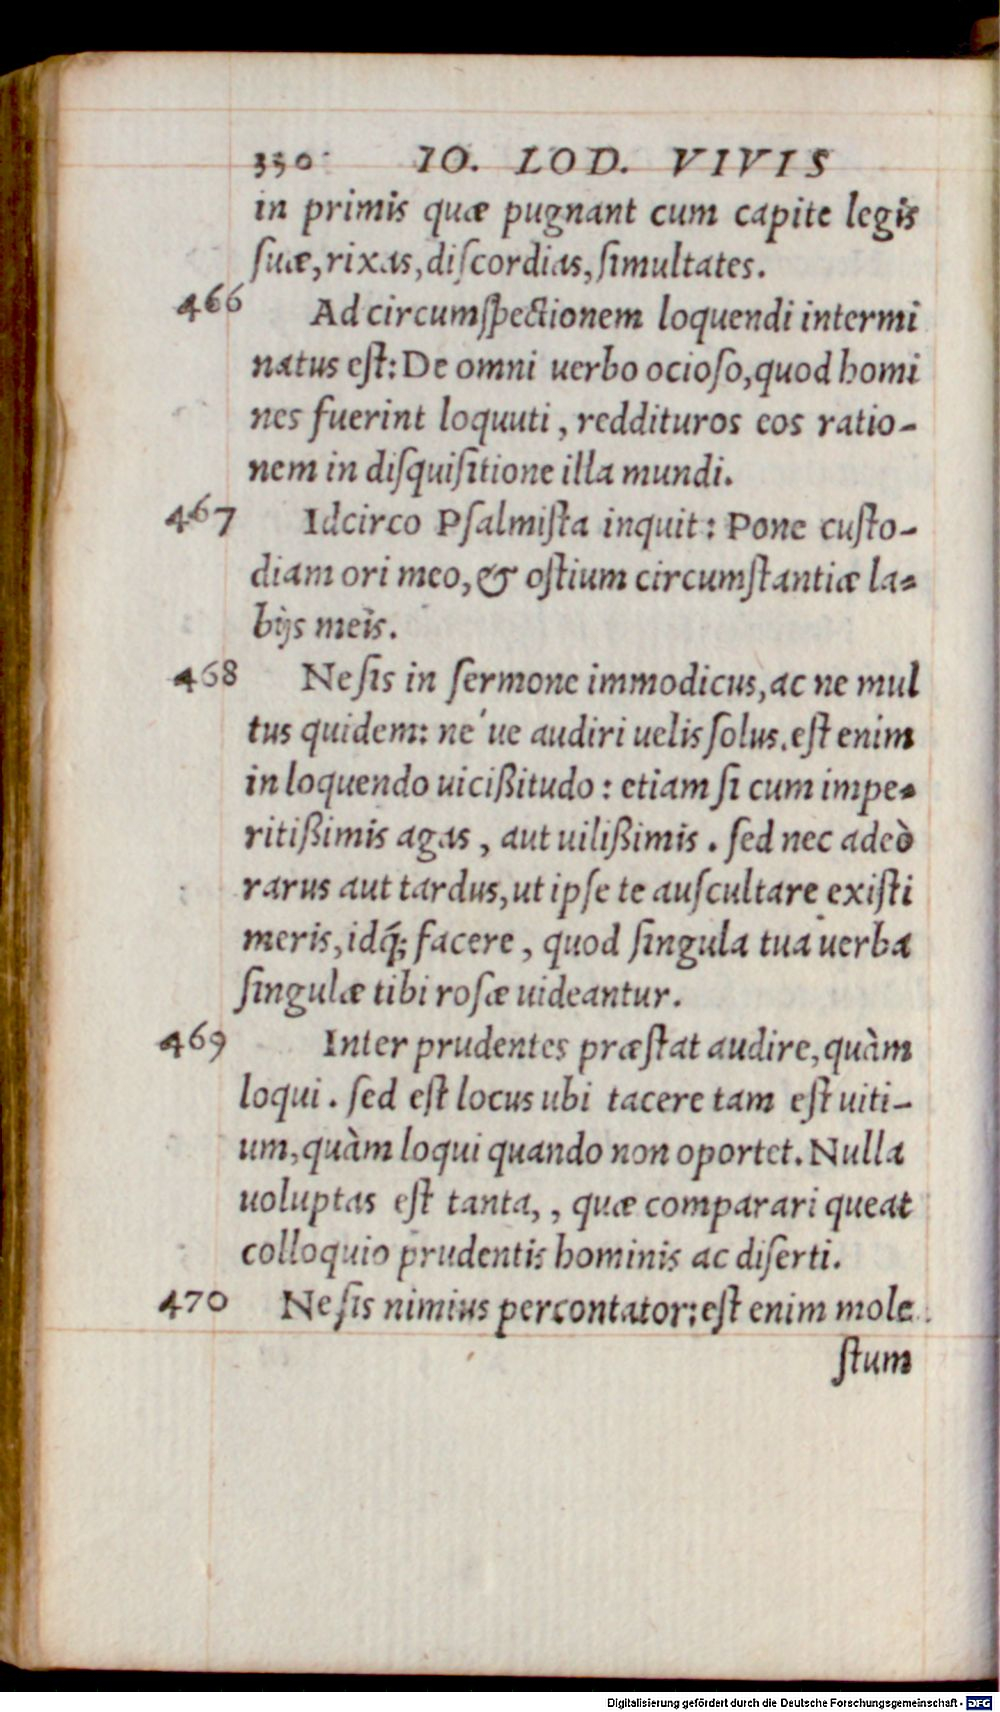 330 IO. LOD. VIVIS
in primis quæ pugnant cum capite legis
ſuæ, rixas, diſcordias, ſimultates.
466 Ad circumſpectionem loquendi intermi
natus eſt: De omni uerbo ocioſo, quod homi
nes fuerint loquuti, reddituros eos ratio-
nem in diſquiſitione illa mundi.
467 Idcirco Pſalmiſta inquit: Pone cuſto-
diam ori meo, & oſtium circumſtantiæ la-
bijs meis.
468 Ne ſis in ſermone immodicus, ac ne mul
tus quidem: ne´ue audiri uelis ſolus. eſt enim
in loquendo uicißitudo: etiam ſi cum impe-
ritißimis agas, aut uilißimis. ſed nec adeò
rarus aut tardus, ut ipſe te auſcultare exiſti
meris, idq́; facere, quod ſingula tua uerba
ſingulæ tibi roſæ uideantur.
469 Inter prudentes præſtat audire, quàm
loqui. ſed eſt locus ubi tacere tam eſt uiti-
um, quàm loqui quando non oportet. Nulla
uoluptas eſt tanta, , quæ comparari queat
colloquio prudentis hominis ac diſerti.
470 Ne ſis nimius percontator: eſt enim mole
ſtum
Digitalisierung gefördert durch die Deutsche Forschungsgemeinschaft - DFG